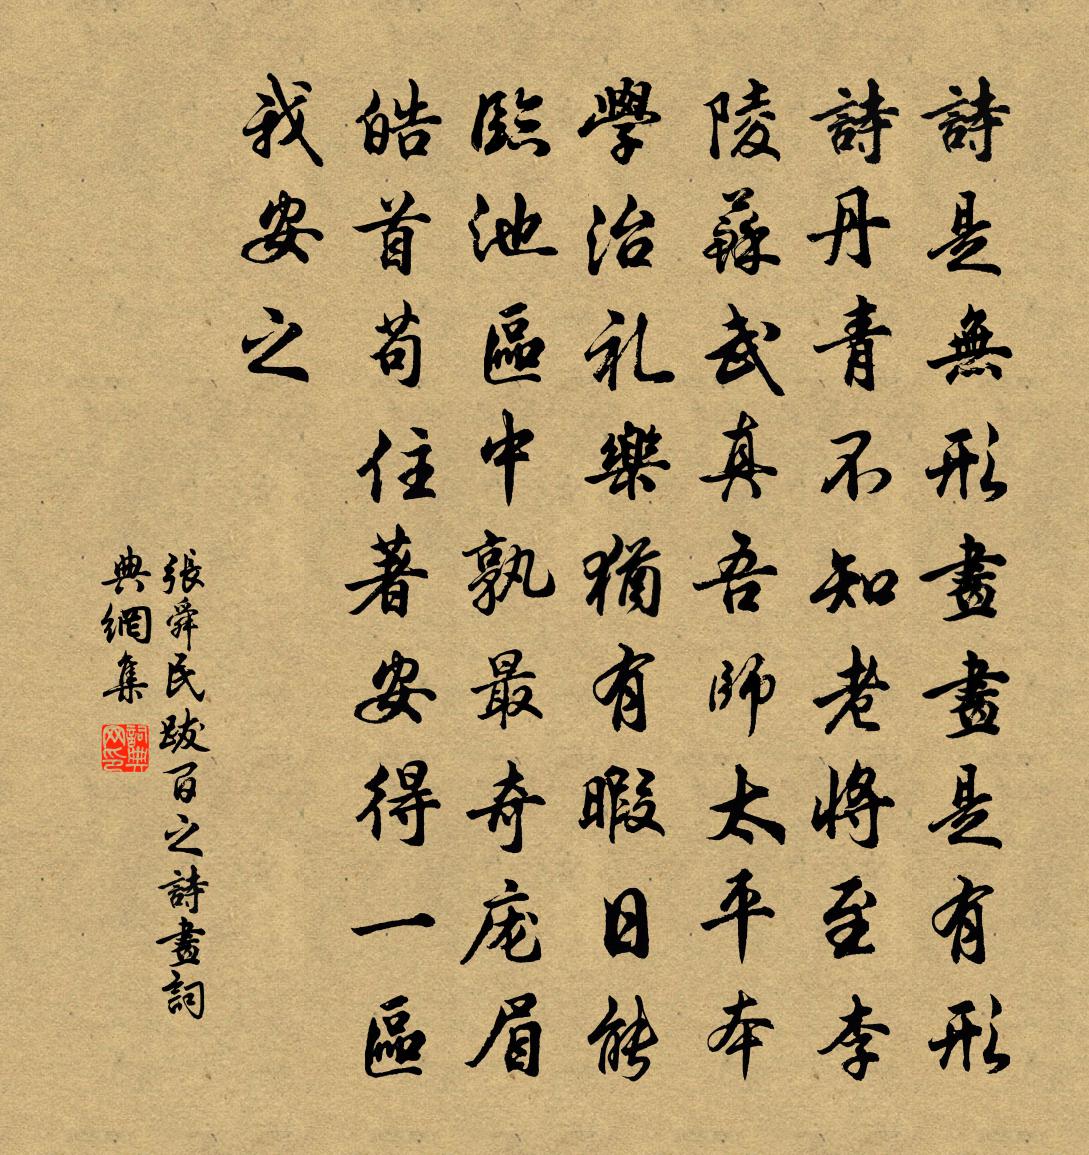 詩是無形畫畫是有形
詩丹青不知老將至李
陵蘇武真吾師太平本
學治礼樂猶有暇日能
臨池區中孰最奇庬眉
皓首苟住著安得一區
我安之
張舜民跋百之詩畫詞
典網集
詞典
网印